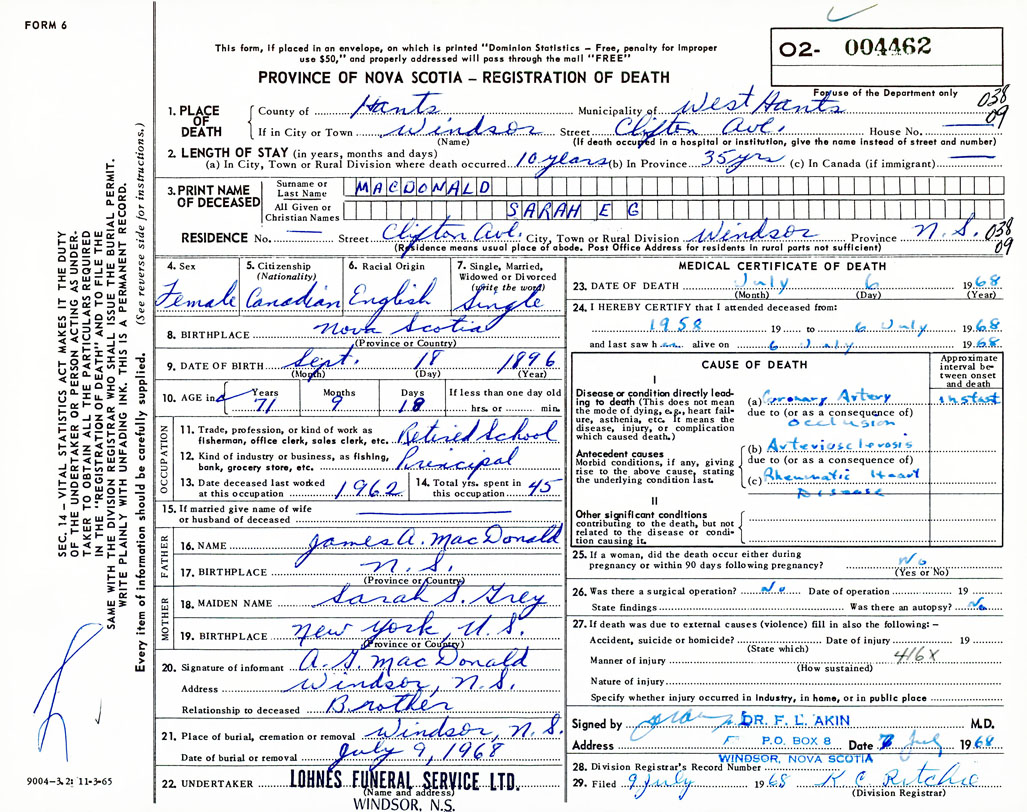 FORM 6
This form, if placed in an envelope, on which is printed "Dominion Statistics – Free, penalty for improper
use $50," and properly addressed will pass through the mail "FREE"
PROVINCE OF NOVA SCOTIA – REGISTRATION OF DEATH
02- 004462
For use of the Department only
038
09
1. PLACE OF DEATH
County of Hants Municipality of West Hants
If in City or Town Windsor Street Clifton Ave. House No. —
(Name) (If death occurred in a hospital or institution, give the name instead of street and number)
2. LENGTH OF STAY (in years, months and days)
(a) In City, Town or Rural Division where death occurred 10 years (b) In Province 35 yrs (c) In Canada (if immigrant) —
3. PRINT NAME OF DECEASED
Surname or Last Name MACDONALD
All Given or Christian Names SARAH E G
RESIDENCE No. — Street Clifton Ave. City, Town or Rural Division Windsor Province N.S. 038
09
(Residence means usual place of abode. Post Office Address for residents in rural parts not sufficient)
4. Sex
Female
5. Citizenship
(Nationality)
Canadian
6. Racial Origin
English
7. Single, Married,
Widowed or Divorced
(write the word)
Single
8. BIRTHPLACE Nova Scotia
(Province or Country)
9. DATE OF BIRTH Sept. 18 1896
(Month) (Day) (Year)
10. AGE in Years Months Days If less than one day old
71 9 18 hrs. or min.
OCCUPATION
11. Trade, profession, or kind of work as
fisherman, office clerk, sales clerk, etc. Retired School
12. Kind of industry or business, as fishing,
bank, grocery store, etc. Principal
13. Date deceased last worked
at this occupation 1962
14. Total yrs. spent in
this occupation 45
15. If married give name of wife
or husband of deceased —
FATHER
16. NAME James A. MacDonald
17. BIRTHPLACE N.S.
(Province or Country)
MOTHER
18. MAIDEN NAME Sarah S. Grey
19. BIRTHPLACE New York, U.S.
(Province or Country)
20. Signature of informant A. G. MacDonald
Address Windsor, N.S.
Relationship to deceased Brother
21. Place of burial, cremation or removal Windsor, N.S.
Date of burial or removal July 9, 1968
22. UNDERTAKER LOHNES FUNERAL SERVICE LTD.
(Name and address)
WINDSOR, N.S.
MEDICAL CERTIFICATE OF DEATH
23. DATE OF DEATH July 6 1968
(Month) (Day) (Year)
24. I HEREBY CERTIFY that I attended deceased from:
1958 19 to 6 July 1968
and last saw h alive on 6 July 1968
CAUSE OF DEATH
Approximate interval between onset and death
I
Disease or condition directly leading to death (This does not mean the mode of dying, e.g., heart failure, asthenia, etc. It means the disease, injury, or complication which caused death.)
(a) Coronary Artery
due to (or as a consequence of)
occlusion
Antecedent causes
Morbid conditions, if any, giving rise to the above cause, stating the underlying condition last.
(b) Arteriosclerosis
due to (or as a consequence of)
(c) Rheumatic Heart
Disease
II
Other significant conditions
contributing to the death, but not related to the disease or condition causing it.
25. If a woman, did the death occur either during
pregnancy or within 90 days following pregnancy? No
(Yes or No)
26. Was there a surgical operation? No Date of operation 19
State findings Was there an autopsy? No
27. If death was due to external causes (violence) fill in also the following: –
Accident, suicide or homicide? Date of injury 19
(State which)
Manner of injury 416X
(How sustained)
Nature of injury
Specify whether injury occurred in industry, in home, or in public place
Signed by DR. F. L. AKIN M.D.
Address P.O. BOX 8 Date July 1968
WINDSOR, NOVA SCOTIA
28. Division Registrar's Record Number
29. Filed 9 July 1968 K C Ritchie
(Division Registrar)
SEC. 14 – VITAL STATISTICS ACT MAKES IT THE DUTY
OF THE UNDERTAKER OR PERSON ACTING AS UNDER-
TAKER TO OBTAIN ALL THE PARTICULARS REQUIRED
IN THE "REGISTRATION OF DEATH" AND TO FILE THE
SAME WITH THE DIVISION REGISTRAR WHO SHALL ISSUE THE BURIAL PERMIT.
WRITE PLAINLY WITH UNFADING INK. THIS IS A PERMANENT RECORD.
Every item of information should be carefully supplied. (See reverse side for instructions.)
9004-3.2: 11-3-65